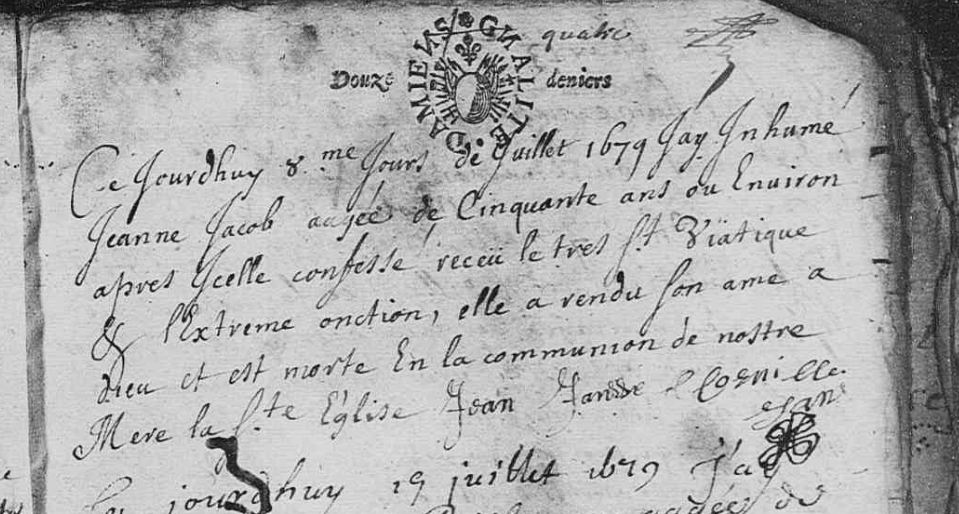 quatre
GNALITE DAMIENS
Douze deniers
Ce Jourdhuy 8.me Jours de Juillet 1679 Jay Inhumé
Jeanne Jacob aagée de Cinquante ans ou Environ
apres Icelle confessé receü le tres St. Viatique
& l'Extreme onction, elle a rendu son ame a
dieu et est morte En la communion de nostre
Mere la Ste Eglise Jean
jourdhuy 19 juillet 1679 J'ay
aagée de